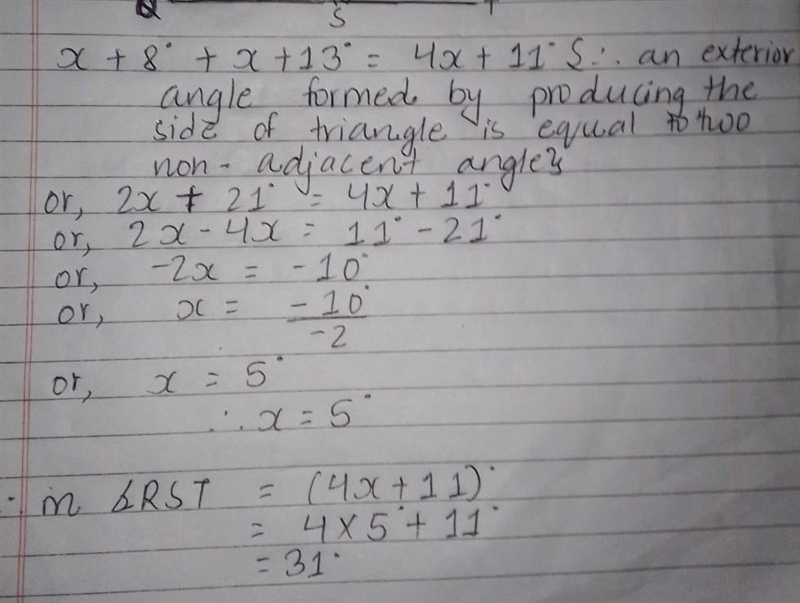 Q S T
x + 8° + x + 13° = 4x + 11° {∴ an exterior
angle formed by producing the
side of triangle is equal to two
non-adjacent angles
or, 2x + 21° = 4x + 11°
or, 2x - 4x = 11° - 21°
or, -2x = -10°
or, x = -10°/-2
or, x = 5°
∴ x = 5°
∴ in ∠RST = (4x + 11)°
= 4 × 5° + 11°
= 31°